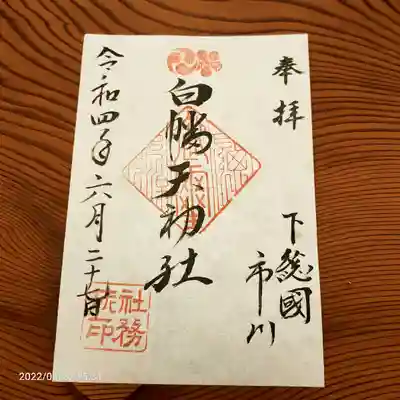 奉拝
下総國
市川
白幡天神社
令和四年六月二十
社務
印